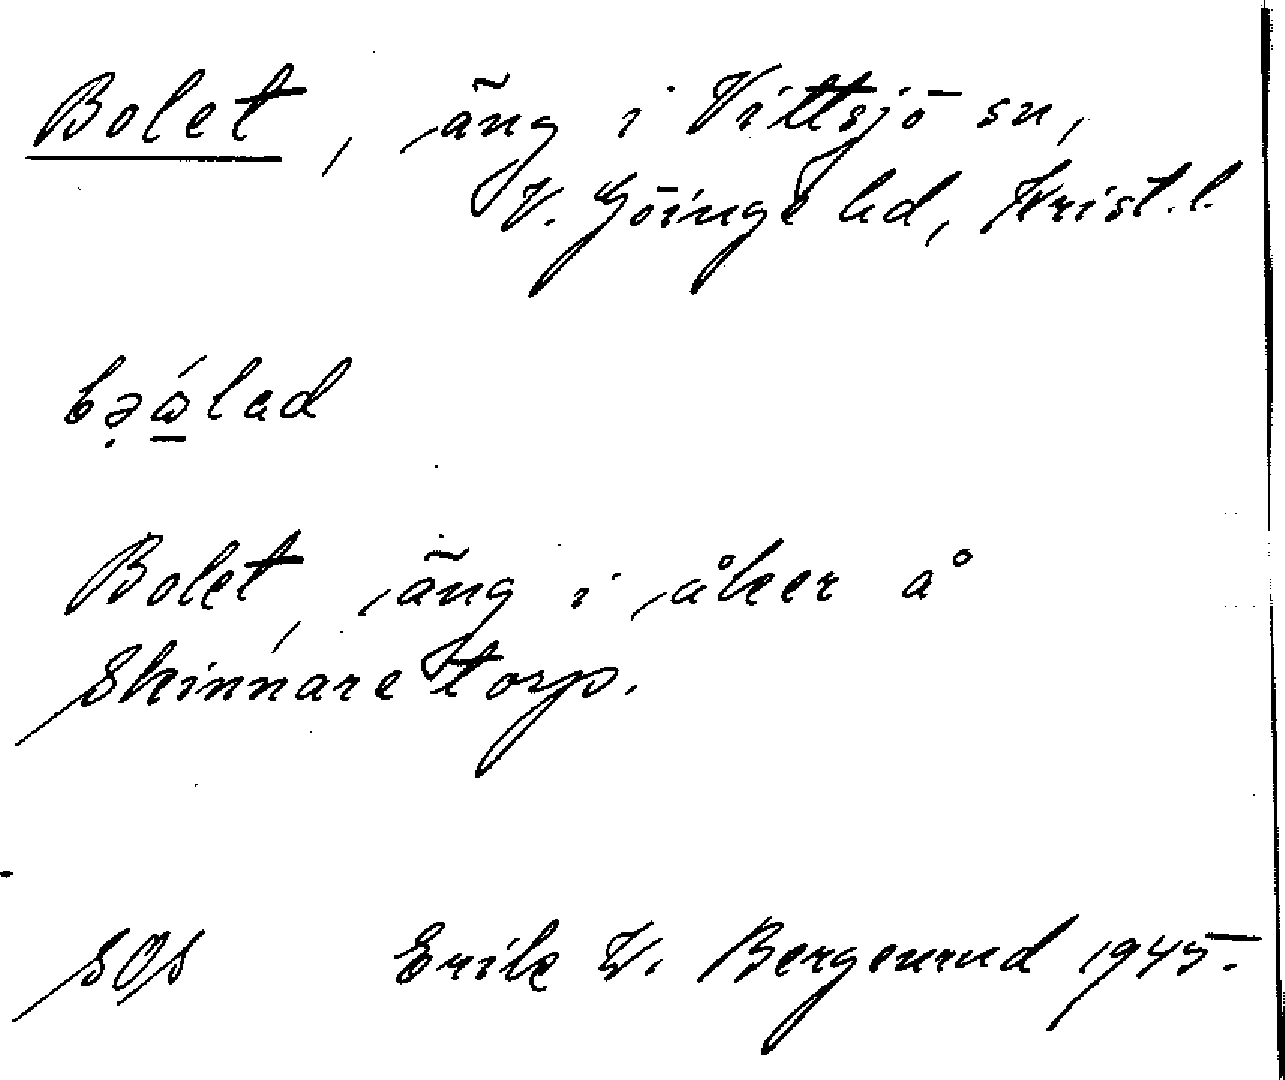 Bolet, äng i Vittsjö sn,
V. Göinge hd, Krist. l.
bə̣ώ̲lad
Bolet, äng i åker å
Skinnaretorp.
SOS Erik W. Bergenrud 1945.